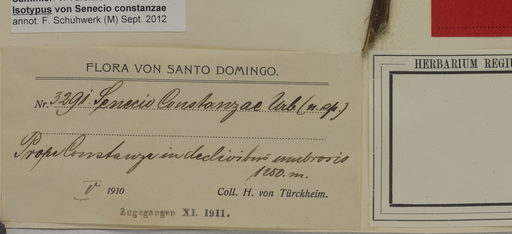 Isotypus von Senecio constanzae
annot. F. Schuhwerk (M) Sept. 2012
FLORA VON SANTO DOMINGO.
Nr. 3291. Senecio Constanzae Urb. (n. sp.)
Prope Constanza in declivibus umbrosis
1250 m.
V 1910 Coll. H. von Türckheim.
Zugegangen XI. 1911.
HERBARIUM REGIU